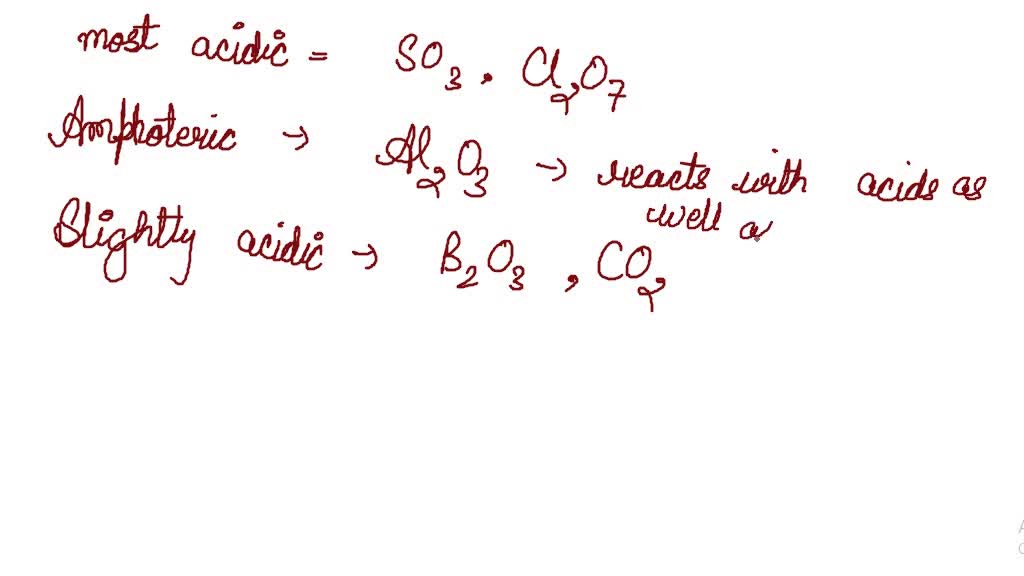 most acidic = SO3, Cl2O7
Amphoteric → Al2O3 → reacts with acids as
well a
Slightly acidic → B2O3, CO2